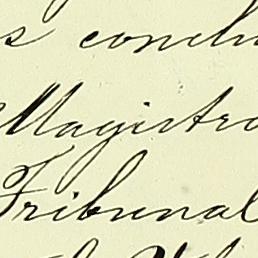 s conclu
Magistra
Tribunal